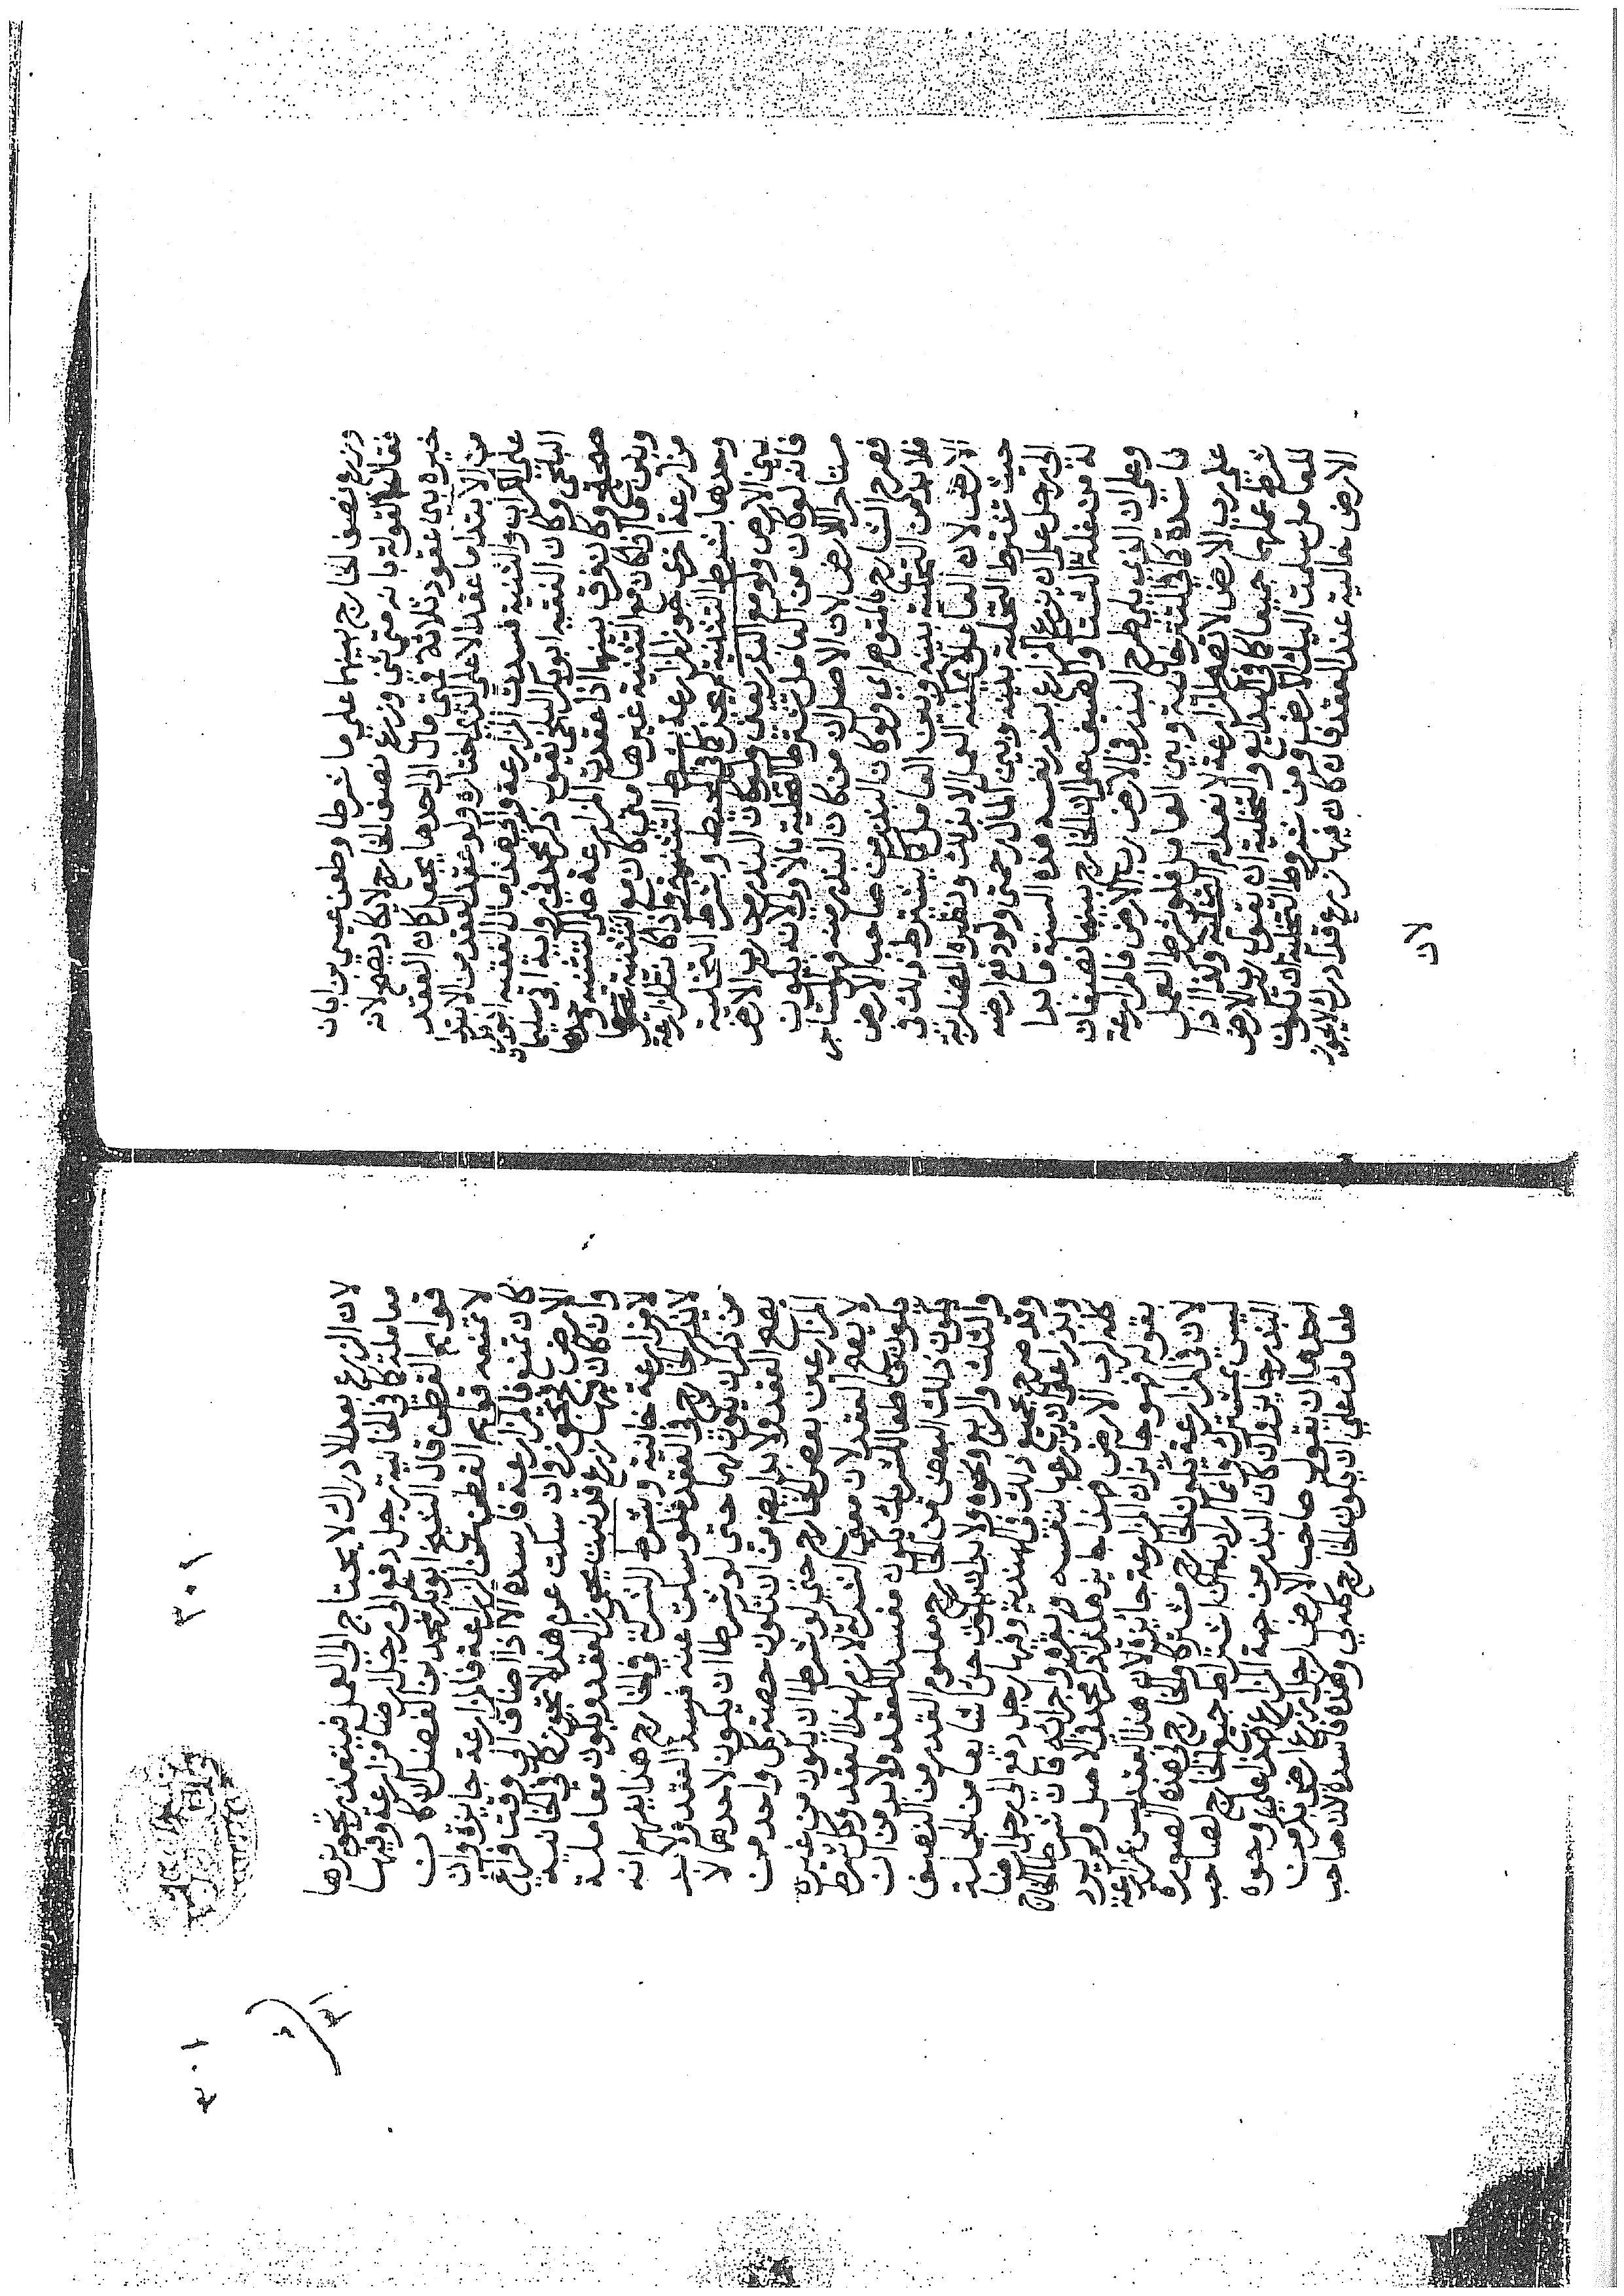 وزرع نصف الخارج بينهما على ما شرطا وطعن عيسى بن ابان
فقال القوله بانه متى ثنى وزرع نصف الخارج لا يكاد يصح لانه
خيره بين عقود ثلاثة فمتى مال الى احدها يجعل كان العقد
من الابتدا ما عقد الا على الذي اختاره ولو عقد العقد من الابتدا
على الكراب والثنية فسدت المزارعة والى هذا مال الفقيه ابو بكر
البلخي وكان الفقيه ابو بكر البلخي يقول ذكر محمد في رواية ابي سليمان
صحيح وكان يفرق بينهما اذا عقدت المزارعة على الثنية وحدها
وبين ما اذا كان مع الثنية غيرها متى كان مع الثنية غيرها
مزارعة اخرى يجوز المزارعة بشرط الثنية واذا كانت المزارعة
وحدها بشرط الثنية لم يجز كما في المحيط وبشرط التخلية
بين الارض ولو مع البذر يعني ولو كان البذر من رب الارض
فانه لو كان من العامل تشترط التخلية بالاولى لانه يكون
مستاجر الارض لان الاصل ان من كان البذر منه فهو المستاجر
فصرح الشارح بالمتوهم اي ولو كان البذر من صاحب الارض
فلا بد من التخلية بينه وبين العامل كما يشترط ذلك في
الارض لان العامل لا يمكنه العمل الا بذلك ونظيره المضاربة
حيث تشترط التخلية بينه وبين المال حتى ولو دفع ارضه
الى رجل على ان يزرع المزارع ببذر نفسه هذه السنة ما بدا
له من غلة الشتا والصيف على ان الخارج بينهما نصفان
وعلى ان الذي يلي طرح البذر في الارض رب الارض فالمزارعة
فاسدة كما في التترخانية وبين العامل فلو شرط العمل
على رب الارض لا تصح المزارعة لانعدام التخلية وكذا اذا
شرط عملهما جميعا كما في البدايع والتخلية ان يقول رب الارض
للعامل سلمت اليك الارض ومن شروط التخلية ان تكون
الارض خالية عند العقد فان كان فيها زرع قد ادرك لا يجوز
لان
لان الزرع بعد الادراك لا يحتاج الى العمل فيتعذر تجويزها
معاملة كما في الخانية رجل دفع الى رجل ارضا مزارعة وفيها
قوايم القطن قال الشيخ ابو بكر محمد بن الفضل ان كان
لا تمنعه قوايم القطن عن الزراعة فالمزارعة جايزة وان
كان تمنع فالمزارعة فاسدة الا اذا اضاف الى وقت فراغ
الارض فتجوز وان سكت عن هذا لا تجوز كما في الخانية
وان كان فيها زرع قد نبت يجوز العقد ويكون معاملة
لا مزارعة خانية وبشرط الشركة في الخارج هذا يوهم انه
لا يذكر الخارج في العقد فلو سكت عنه فسد العقد ولا بد
من ذكر ان يكون لهما حتى لو شرطا ان يكون لاحدهما لا
يصح العقد ولا بد ايضا من ان تكون حصة كل واحد من
المزارعين بعض الخارج حتى لو شرطا ان يكون من غيره
لا يصح العقد لان معنى الشركة لازم لهذا العقد وكل شرط
يكون قاطعا للشركة يكون مفسدا للعقد ولا بد من ان
يكون ذلك البعض من الخارج معلوم القدر من النصف
والثلث والربع ونحوه ولا بد ان يكون جزأ شايعا من الجملة
وقد صرح بجميع ذلك في الهندية وفيها رجل دفع الى رجل ارضا
وبذرا على ان يزرعها بنفسه وبقره واجرائه فان شرط الخارج
كله لرب الارض فهذا جايز هكذا ذكر محمد في الاصل ولم يرد
بقوله فهو جايز ان المزارعة جايزة لان هذا العقد ليس بمزارعة
لان في المزارعة يكون الخارج مشتركا والخارج في هذه الصورة
ليس بمشترك وانما اراد به ان اشتراط جميع الخارج لصاحب
البذر جايز وان كان البذر من جهة المزارع فهذا على وجوه
احدها ان يقول صاحب الارض لرجل ازرع ارضي بكر من
طعامك على ان يكون الخارج كله لي وهذه فاسدة لان صاحب